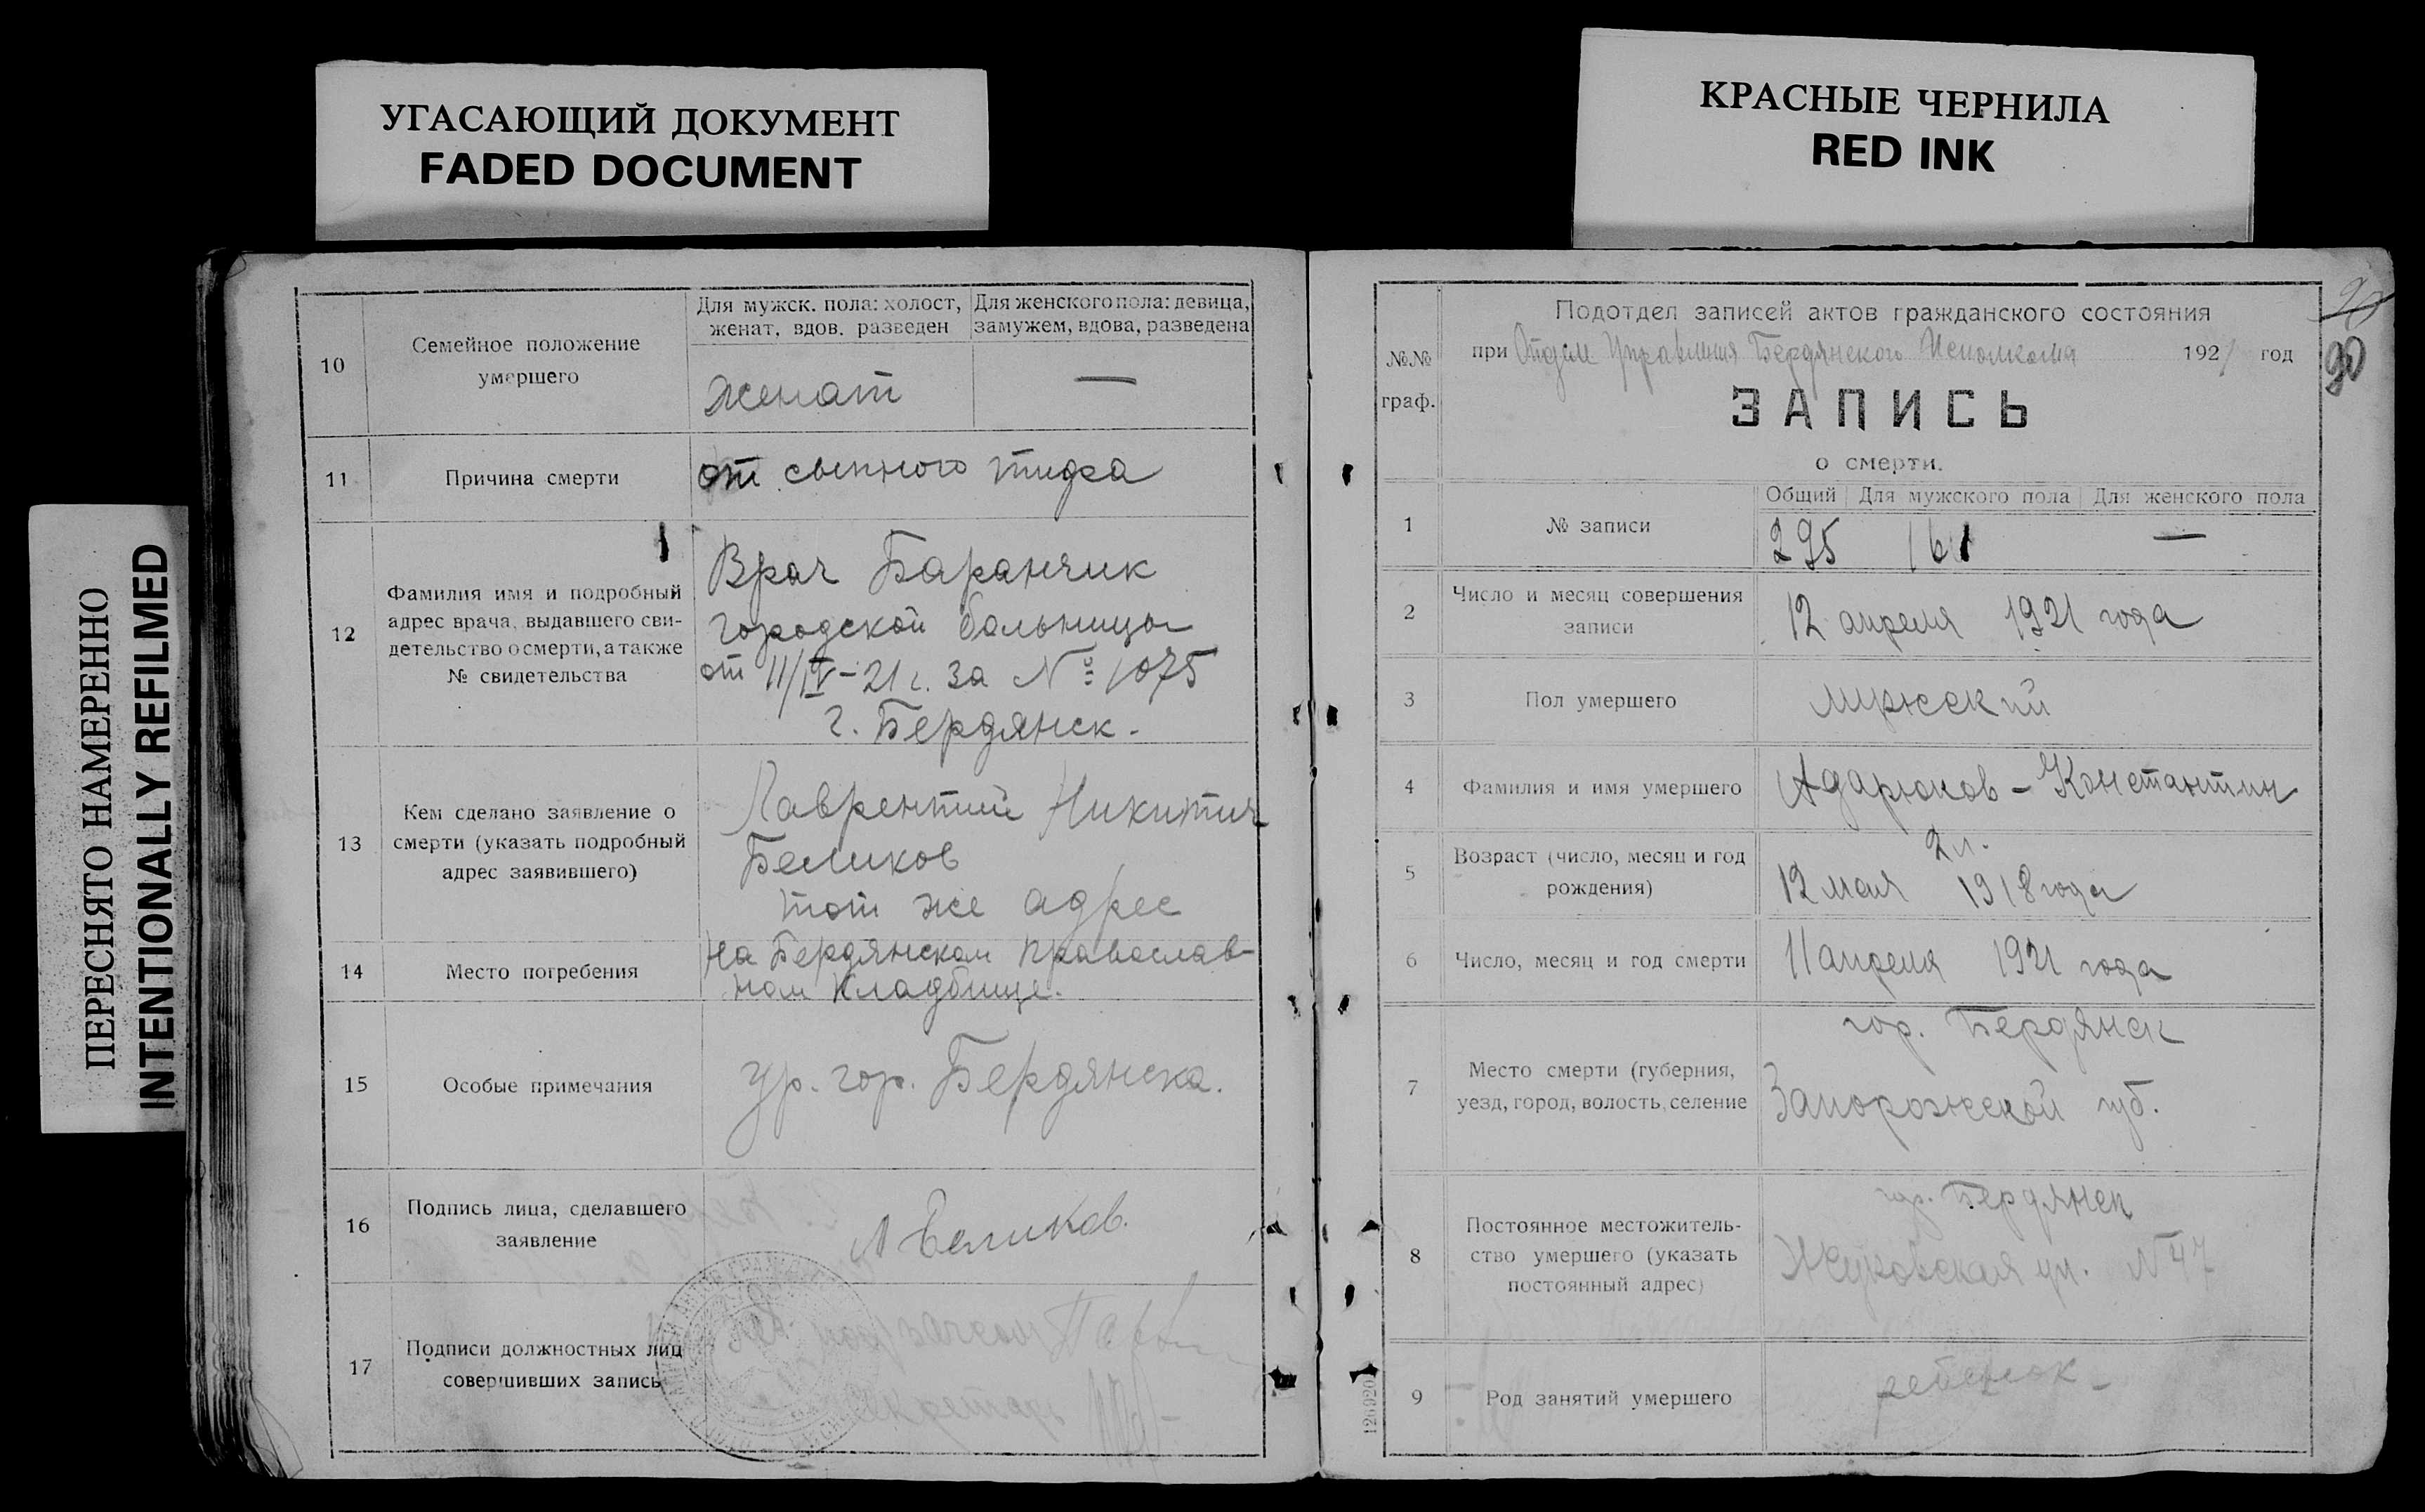 УГАСАЮЩИЙ ДОКУМЕНТ
FADED DOCUMENT
КРАСНЫЕ ЧЕРНИЛА
RED INK
ПЕРЕСНЯТО НАМЕРЕННО
INTENTIONALLY REFILMED
10
Семейное положение
умершего
Для мужск. пола: холост,
женат, вдов. разведен
Для женского пола: девица,
замужем, вдова, разведена
женат
—
11
Причина смерти
от сыпного тифа
12
Фамилия имя и подробный
адрес врача, выдавшего сви-
детельство о смерти, а также
№ свидетельства
Врач Баранчик
городской больницы
от 11/IV-21 г. за № 1075
г. Бердянск.
13
Кем сделано заявление о
смерти (указать подробный
адрес заявившего)
Лаврентий Никитич
Беликов
тот же адрес
14
Место погребения
на Бердянском православ-
ном кладбище.
15
Особые примечания
ур. гор. Бердянска.
16
Подпись лица, сделавшего
заявление
Л Беликов.
17
Подписи должностных лиц
совершивших запись
90
№№
граф.
Подотдел записей актов гражданского состояния
при Отделе Управления Бердянского Исполкома 1921 год
ЗАПИСЬ
о смерти.
1
№ записи
Общий Для мужского пола Для женского пола
295 161 —
2
Число и месяц совершения
записи
12 апреля 1921 года
3
Пол умершего
мужский
4
Фамилия и имя умершего
Адарюков - Константин
5
Возраст (число, месяц и год
рождения)
2 л.
12 мая 1918 года
6
Число, месяц и год смерти
11 апреля 1921 года
7
Место смерти (губерния,
уезд, город, волость, селение
гор. Бердянск
Запорожской губ.
8
Постоянное местожитель-
ство умершего (указать
постоянный адрес)
гор. Бердянск
Жуковская ул. № 47
9
Род занятий умершего
ребенок -